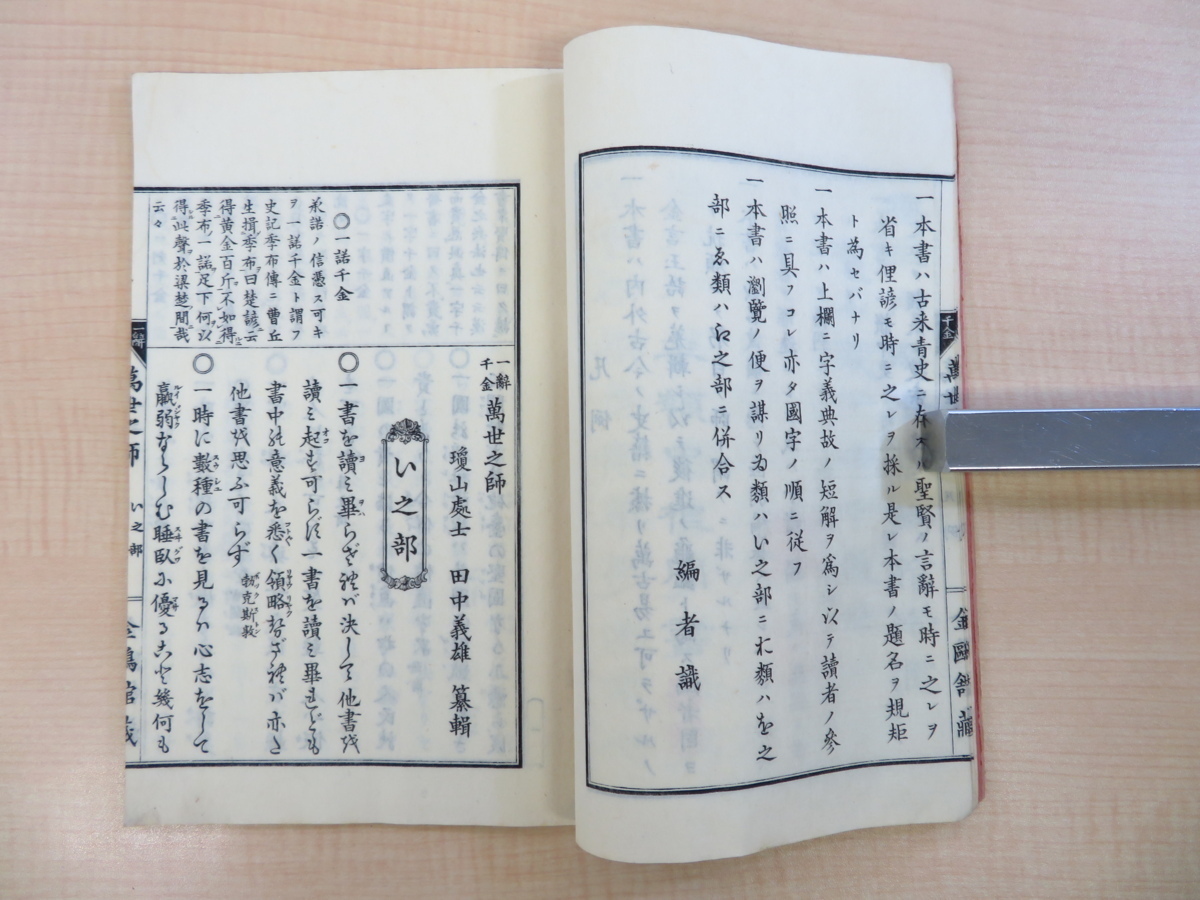 一本書ハ古来青史ニ存スル聖賢ノ言辭モ時ニ之レヲ
省キ俚諺モ時ニ之レヲ採ル是レ本書ノ題名ヲ規矩
ト為セバナリ
一本書ハ上欄ニ字義典故ノ短解ヲ為シ以テ讀者ノ參
照ニ具フコレ亦タ國字ノ順ニ従フ
一本書ハ瀏覽ノ便ヲ謀リゐ類ハい之部ニお類ハを之
部ニゑ類ハ江之部ニ併合ス
編者識
千金
萬世
金鷗舘藏
〇一諾千金
承諾ノ信憑ス可キ
ヲ一諾千金ト謂フ
史記季布傳ニ曹丘
生揖季布曰楚諺云
得黄金百斤不如得
季布一諾足下何以
得此聲於梁楚間哉
云々
一辭千金 萬世之師
瓊山處士 田中義雄 纂輯
い之部
〇一書を讀ミ畢らざれバ決して他書を
讀ミ起す可らず一書を讀ミ畢れども
書中の意義を悉く領略せざれバ亦た
他書を思ふ可らず 勃克斯敦
〇一時に數種の書を見るハ心志をして
羸弱ならしむ睡臥に優ること幾何も
一辭
萬世之師 い之部